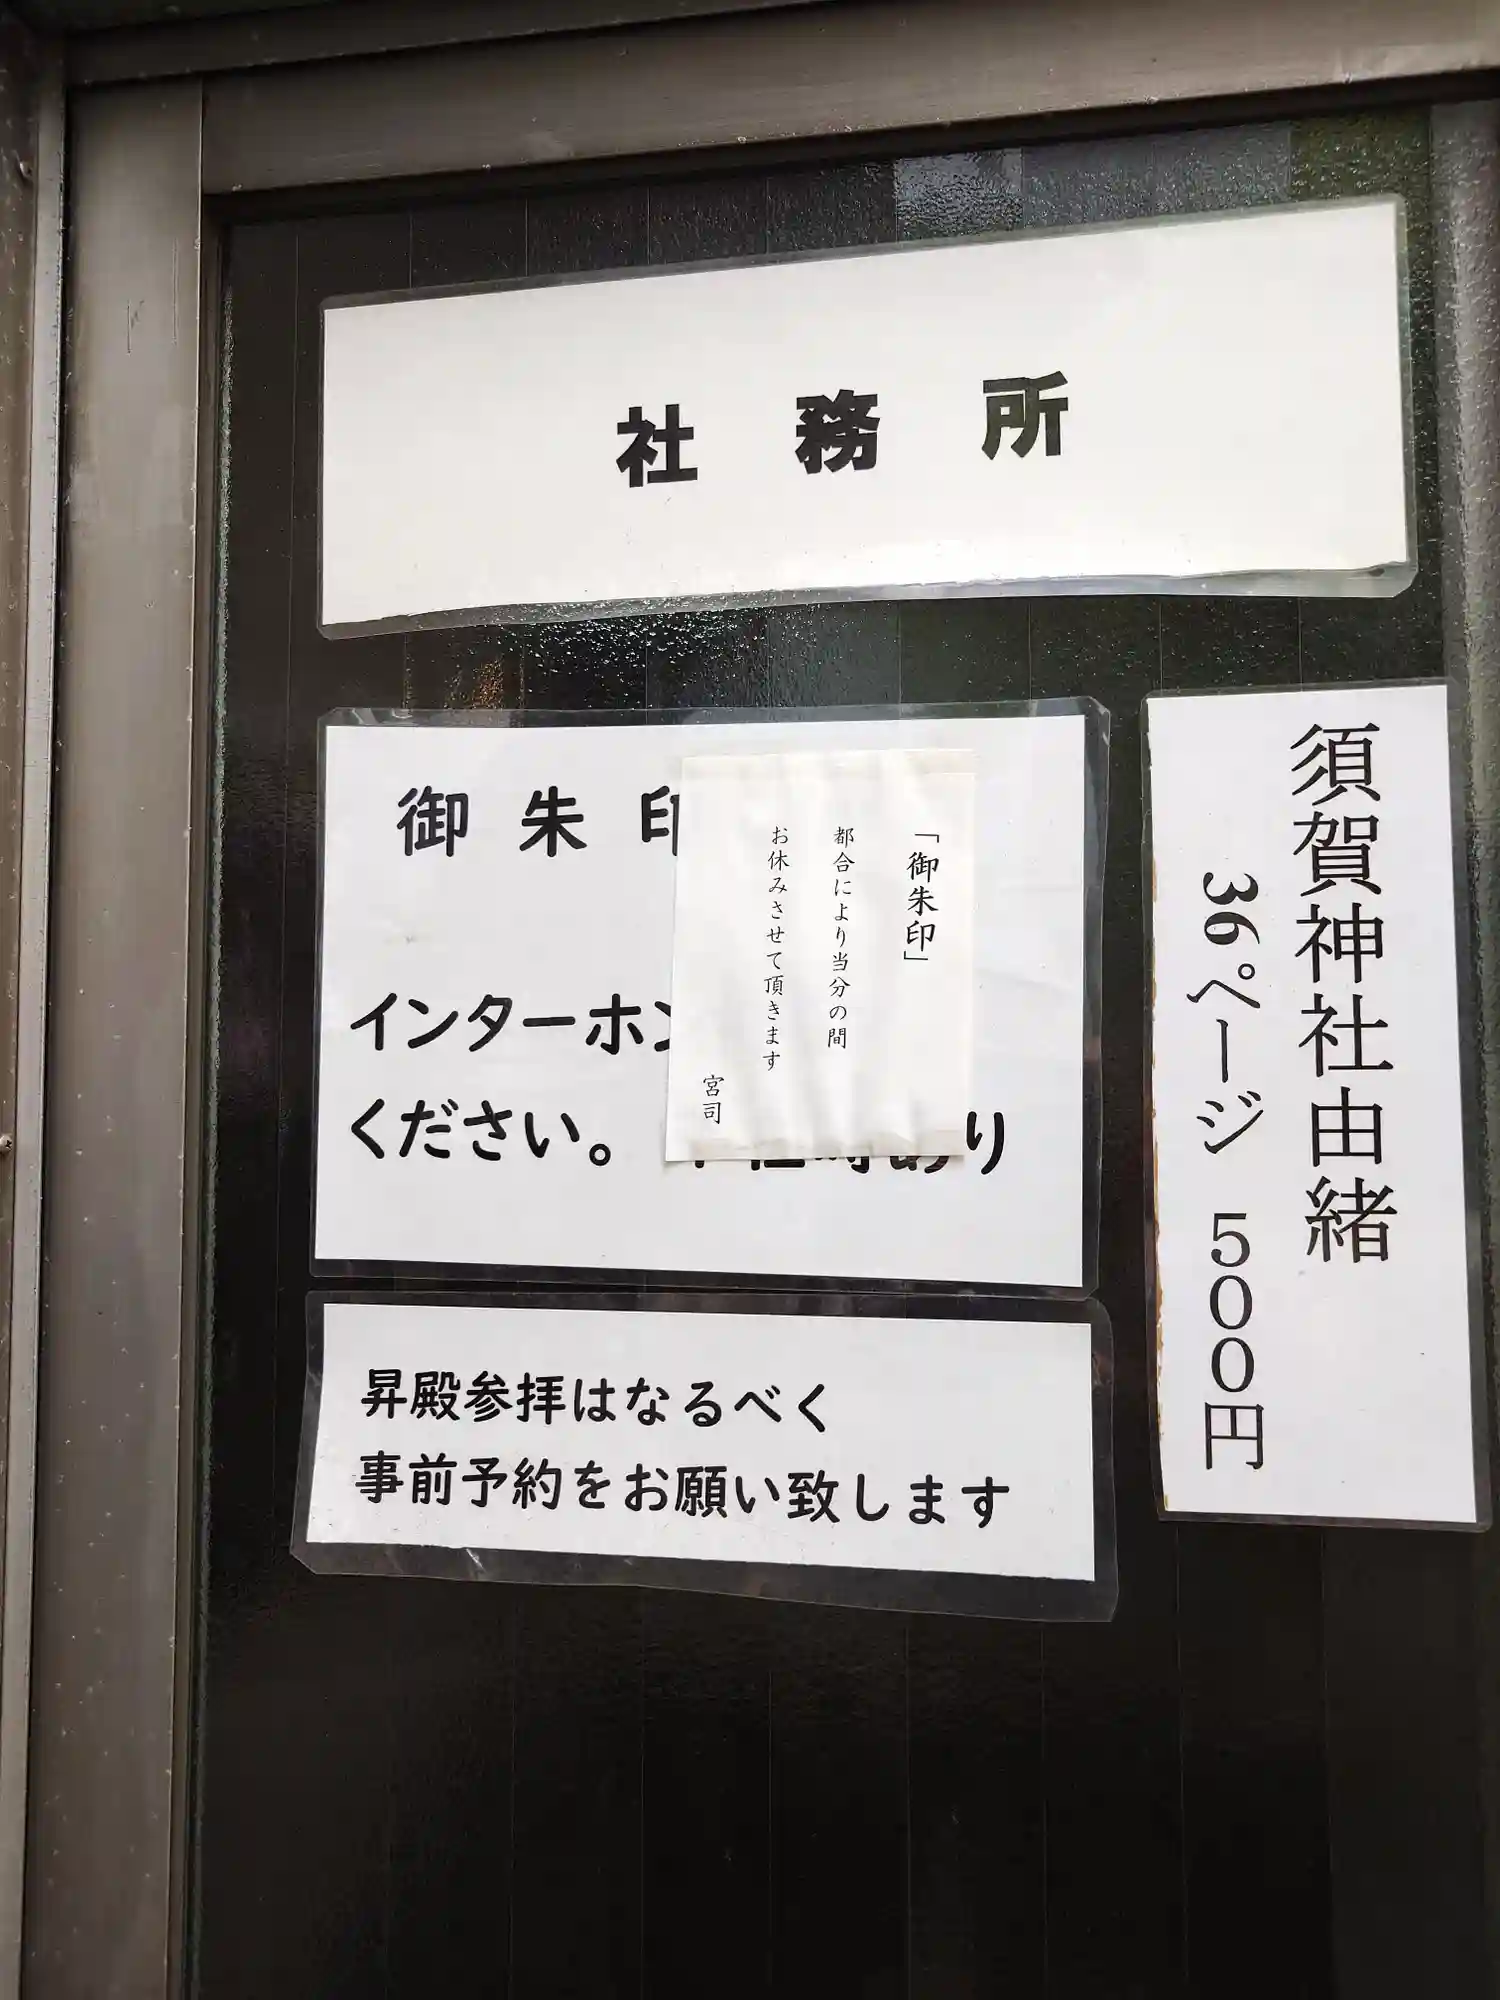 社務所
御朱印
インターホン
ください。
あり
「御朱印」
都合により当分の間
お休みさせて頂きます
宮司
須賀神社由緒
36ページ 500円
昇殿参拝はなるべく
事前予約をお願い致します